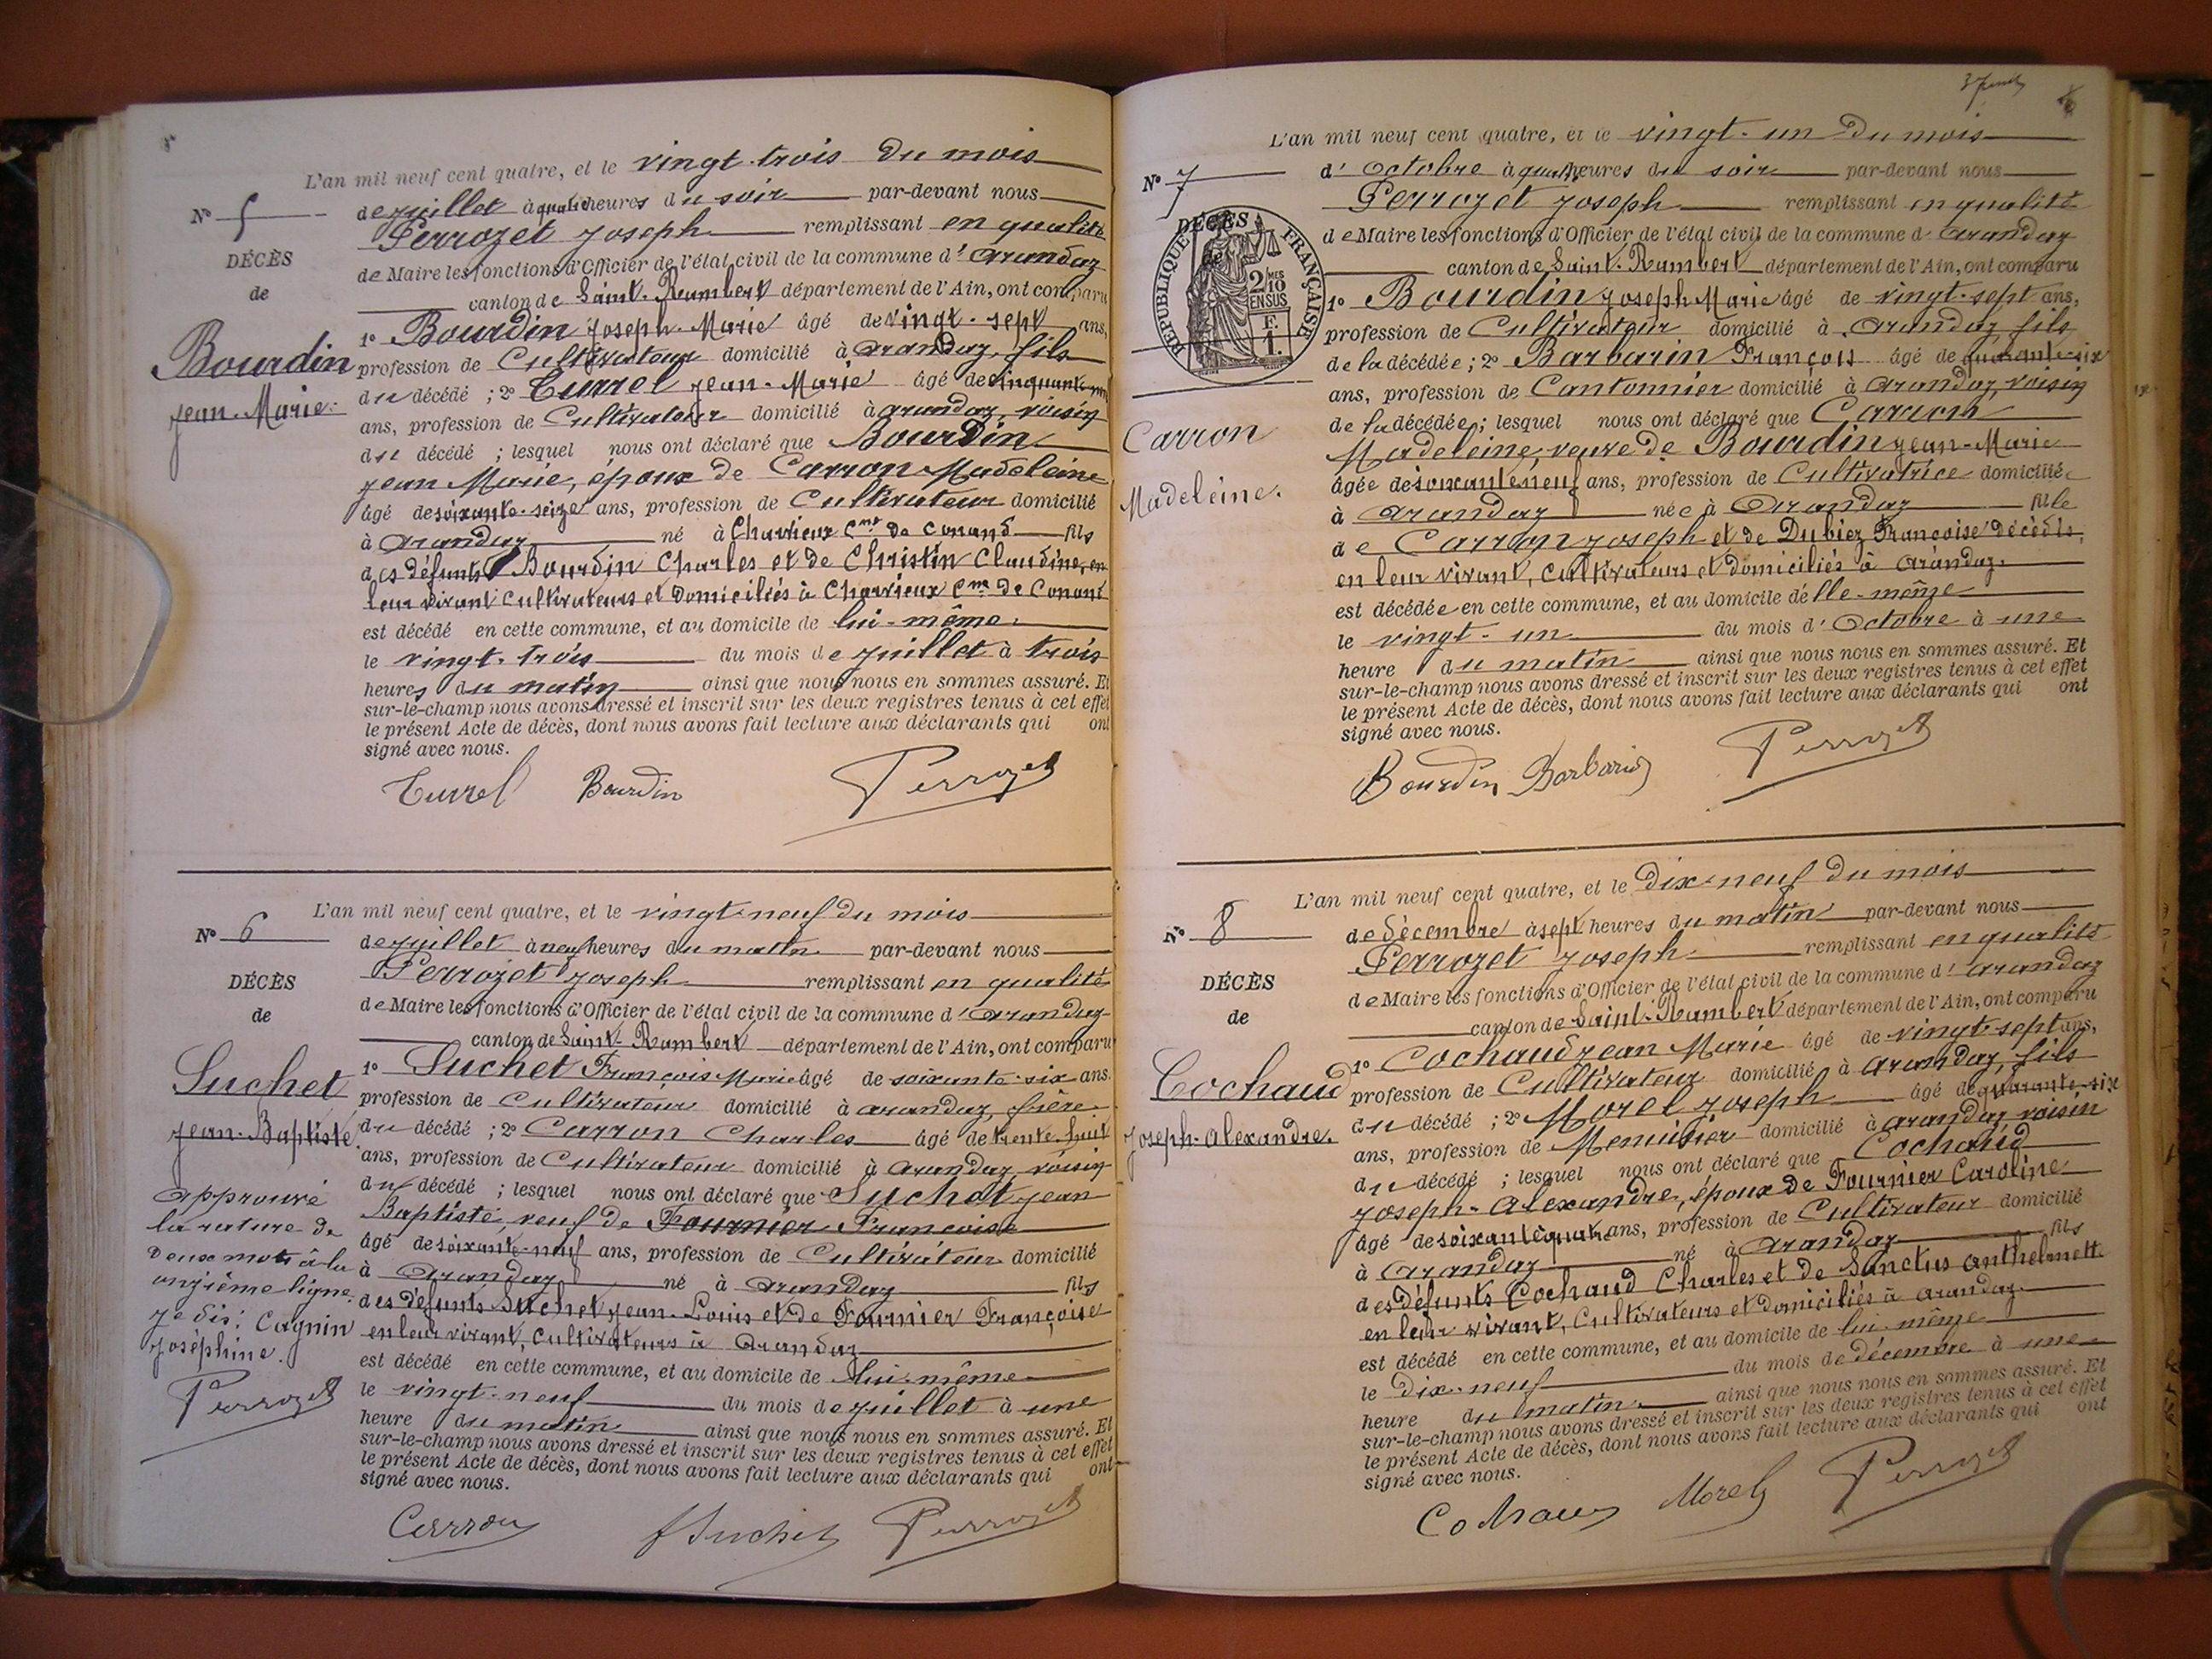 L'an mil neuf cent quatre, et le vingt-trois du mois
N° 5
DÉCÈS
de
Bourdin
Jean-Marie
de juillet à quatre heures du soir par-devant nous
Perrozet Joseph remplissant en qualité
de Maire les fonctions d'Officier de l'état civil de la commune d'Arandaz
canton de Saint-Rambert département de l'Ain, ont comparu
1° Bourdin Joseph-Marie âgé de vingt-sept ans,
profession de Cultivateur domicilié à Arandaz, fils
du décédé ; 2° Turrel Jean-Marie âgé de
ans, profession de Cultivateur domicilié à Arandaz, voisin
du décédé ; lesquel nous ont déclaré que Bourdin
Jean Marie, époux de Carron Madeleine
âgé de soixante-seize ans, profession de Cultivateur domicilié
à Arandaz né à Charvieux Cne de Conand fils
des défunts Bourdin Charles et de Christin Claudine, en
leur vivant cultivateurs et domiciliés à Charvieux Cne de Conand
est décédé en cette commune, et au domicile de lui-même.
le vingt-trois du mois de juillet à trois
heures du matin ainsi que nous nous en sommes assuré. Et
sur-le-champ nous avons dressé et inscrit sur les deux registres tenus à cet effet
le présent Acte de décès, dont nous avons fait lecture aux déclarants qui ont
signé avec nous.
Turrel Bourdin Perrozet
L'an mil neuf cent quatre, et le vingt-neuf du mois
N° 6
DÉCÈS
de
Suchet
Jean-Baptiste
approuvé
la rature de
deux mots à la
onzième ligne.
je dis: Cagnin
Joséphine.
Perrozet
de juillet à neuf heures du matin par-devant nous
Perrozet Joseph remplissant en qualité
de Maire les fonctions d'Officier de l'état civil de la commune d'Arandaz
canton de Saint-Rambert département de l'Ain, ont comparu
1° Suchet François Marie âgé de soixante-six ans.
profession de Cultivateur domicilié à Arandaz, frère
du décédé ; 2° Carron Charles âgé de trente-huit
ans, profession de Cultivateur domicilié à Arandaz, voisin
du décédé ; lesquel nous ont déclaré que Suchet Jean
Baptiste, veuf de Fournier Françoise
âgé de soixante-neuf ans, profession de Cultivateur domicilié
à Arandaz né à Arandaz fils
des défunts Suchet Jean-Louis et de Fournier Françoise
en leur vivant, cultivateurs à Arandaz
est décédé en cette commune, et au domicile de lui-même
le vingt-neuf du mois de juillet à une
heure du matin ainsi que nous nous en sommes assuré. Et
sur-le-champ nous avons dressé et inscrit sur les deux registres tenus à cet effet
le présent Acte de décès, dont nous avons fait lecture aux déclarants qui ont
signé avec nous.
Carron f Suchet Perrozet
6
L'an mil neuf cent quatre, et le vingt-un du mois
N° 7
DÉCÈS
de
RÉPUBLIQUE FRANÇAISE
2 MES
10
EN SUS
F.
1.
Carron
Madeleine.
d'Octobre à quatre heures du soir par-devant nous
Perrozet Joseph remplissant en qualité
de Maire les fonctions d'Officier de l'état civil de la commune d'Arandaz
canton de Saint-Rambert département de l'Ain, ont comparu
1° Bourdin Joseph Marie âgé de vingt-sept ans,
profession de Cultivateur domicilié à Arandaz, fils
de la décédée ; 2° Barbarin François âgé de quarante-six
ans, profession de Cantonnier domicilié à Arandaz, voisin
de la décédée ; lesquel nous ont déclaré que Carron
Madeleine, veuve de Bourdin Jean-Marie
âgée de soixante neuf ans, profession de Cultivatrice domiciliée
à Arandaz née à Arandaz fille
de Carron Joseph et de Dubiez Françoise décédés,
en leur vivant, cultivateurs et domiciliés à Arandaz.
est décédée en cette commune, et au domicile d'elle-même
le vingt-un du mois d'Octobre à une
heure du matin ainsi que nous nous en sommes assuré. Et
sur-le-champ nous avons dressé et inscrit sur les deux registres tenus à cet effet
le présent Acte de décès, dont nous avons fait lecture aux déclarants qui ont
signé avec nous.
Bourdin Barbarin Perrozet
L'an mil neuf cent quatre, et le dix-neuf du mois
N° 8
DÉCÈS
de
Cochaud
Joseph-Alexandre.
de décembre à sept heures du matin par-devant nous
Perrozet Joseph remplissant en qualité
de Maire les fonctions d'Officier de l'état civil de la commune d'Arandaz
canton de Saint-Rambert département de l'Ain, ont comparu
1° Cochaud Jean Marie âgé de vingt-sept ans,
profession de Cultivateur domicilié à Arandaz, fils
du décédé ; 2° Morel Joseph âgé de quarante-six
ans, profession de Menuisier domicilié à Arandaz voisin
du décédé ; lesquel nous ont déclaré que Cochaud
Joseph-Alexandre, époux de Fournier Caroline
âgé de soixante quatre ans, profession de Cultivateur domicilié
à Arandaz né à Arandaz fils
des défunts Cochaud Charles et de Sanctus Anthelmette
en leur vivant, cultivateurs et domiciliés à Arandaz.
est décédé en cette commune, et au domicile de lui-même
le dix-neuf du mois de décembre à une
heure du matin ainsi que nous nous en sommes assuré. Et
sur-le-champ nous avons dressé et inscrit sur les deux registres tenus à cet effet
le présent Acte de décès, dont nous avons fait lecture aux déclarants qui ont
signé avec nous.
Cochaud Morel Perrozet